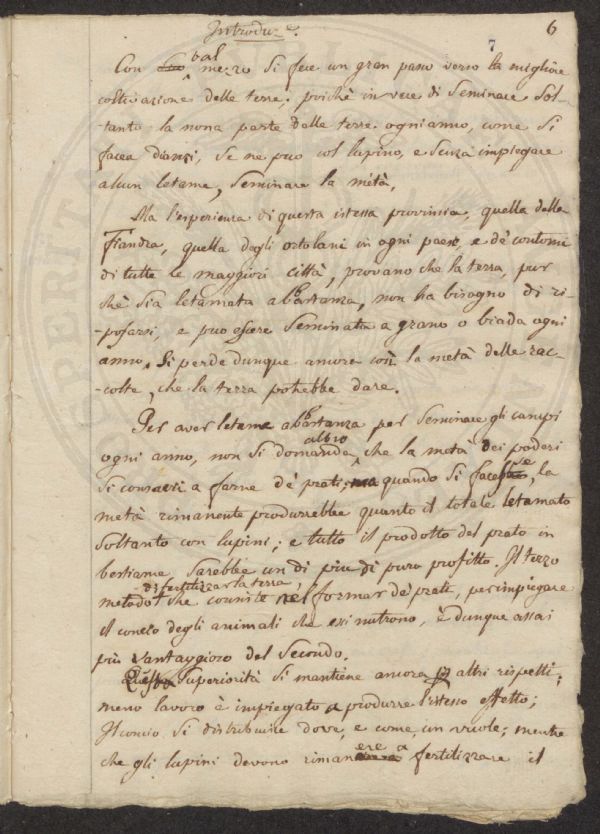 Introduz.e
6
7
Con tal mezzo si fece un gran passo verso la migliore
coltivazione delle terre, poichè in vece di seminare sol-
tanto la nona parte delle terre ogni anno, come si
facea dianzi, se ne può col lupino, e senza impiegare
alcun letame, seminare la metà.
Ma l'esperienza di questa istessa provincia, quella della
Fiandra, quella degli ortolani in ogni paese, e de' contorni
di tutte le maggiori città, provano che la terra, pur
chè sia letamata abbastanza, non ha bisogno di ri-
-posarsi, e può essere seminata a grano o biada ogni
anno. Si perde dunque ancora così la metà delle rac-
-colte, che la terra potrebbe dare.
Per aver letame abbastanza per seminare gli campi
ogni anno, non si domanda altro che la metà dei poderi
si consacri a farne de' prati; ma quando si facesse, la
metà rimanente produrrebbe quanto il totale letamato
soltanto con lupini; e tutto il prodotto del prato in
bestiame sarebbe un di più di puro profitto. Il terzo
metodo di fertilizzar la terra, che consiste nel formar de' prati, per impiegare
il concio degli animali che essi nutrono, è dunque assai
più vantaggioso del secondo.
Questa superiorità si mantiene ancora altri rispetti;
meno lavoro è impiegato a produrre l'istesso effetto;
Il concio si distribuisce dove, e come, un vuole; mentre
che gli lupini devono rimanere a fertilizzare il